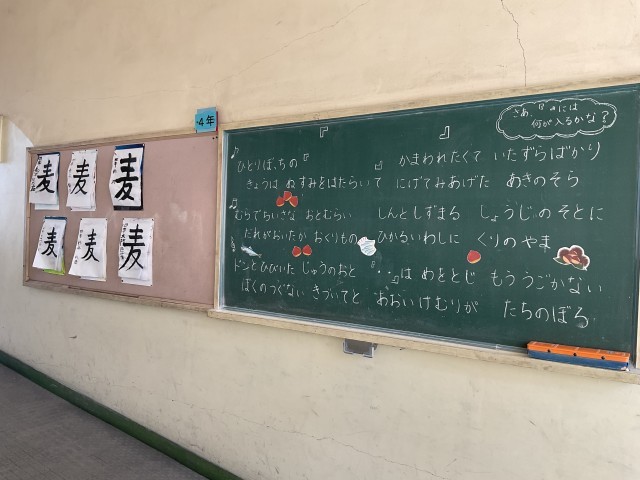 4年
麦
麦
麦
麦
麦
麦
『　』
さあ、『』には
何が入るかな?
ひとりぼっちの『　』かまわれたくて いたずらばかり
きょうは ぬすみをはたらいて にげてみあげた あきのそら
むらでちいさな おとむらい しんとしずまる しょうじのそとに
だれがおいたか おくりもの ひかるいわしに くりのやま
ドンとひびいた じゅうのおと 『・・』は めをとじ もううごかない
ぼくのつぐない きづいてと あおいけむりが たちのぼる